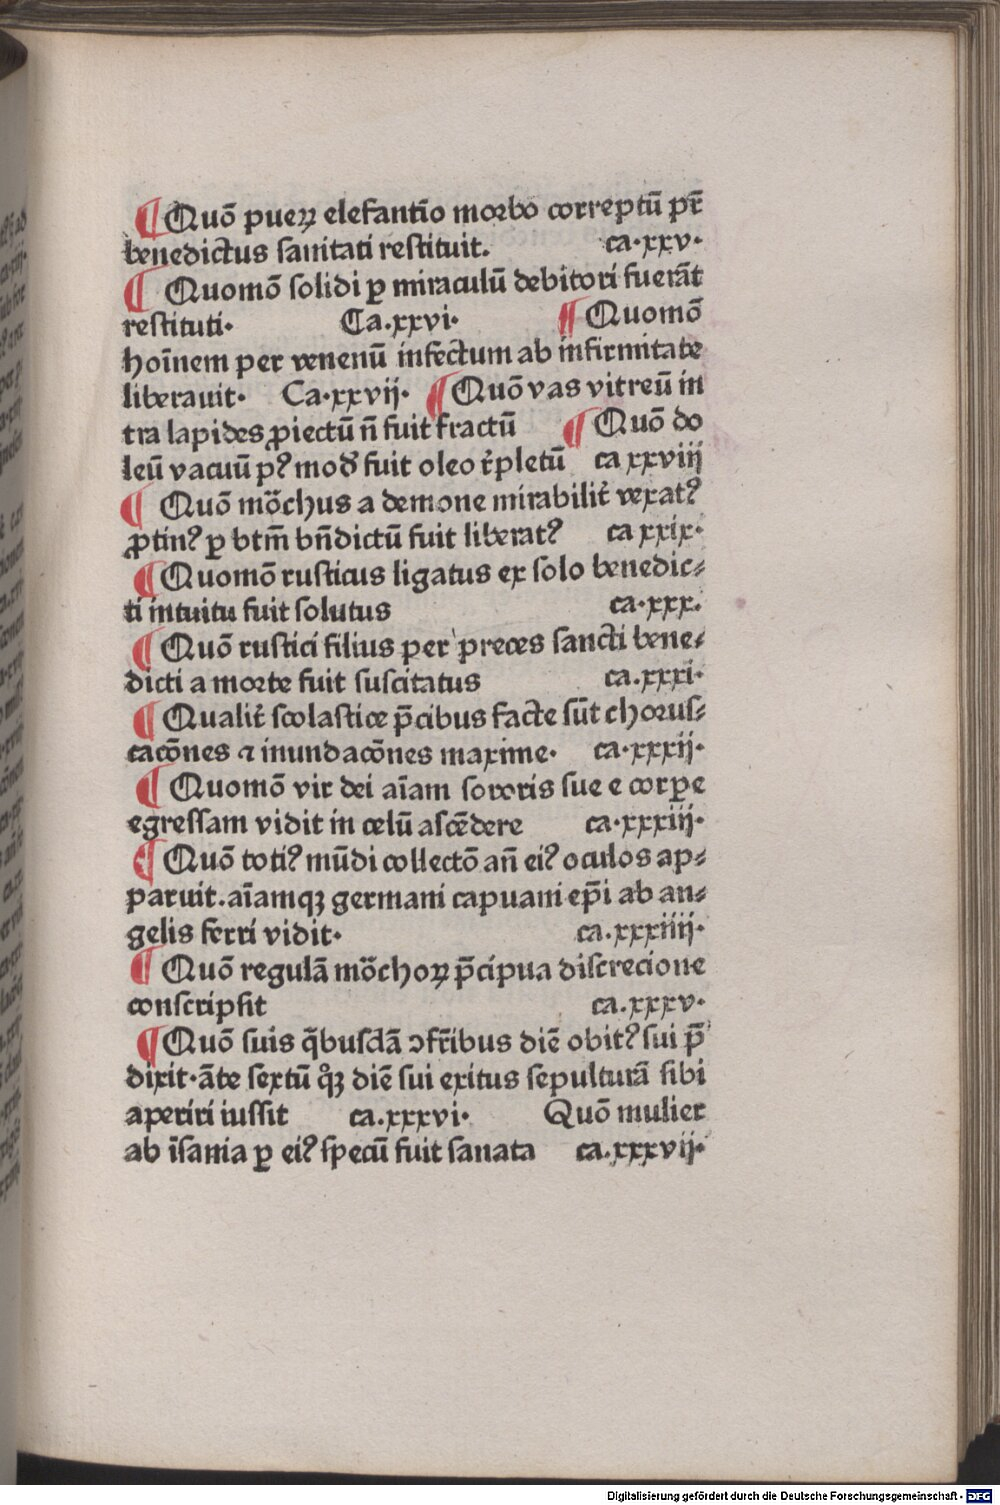 ¶ Quō pueꝝ elefantīo morbo correptū pr̄
benedictus sanitati restituit. ca.xxv.
¶ Quomō solidi ꝑ miraculū debitori fuerāt
restituti. Ca.xxvi. ¶ Quomō
hoīnem per venenū infectum ab infirmitate
liberauit. Ca.xxvij. ¶ Quō vas vitreū in
tra lapides ꝓiectū n̄ fuit fractū ¶ Quō do
leū vacuū pꝰ mod̄ fuit oleo r̄pletū ca xxviij
¶ Quō mōchus a demone mirabilit̄ vexatꝰ
ꝓtinꝰ ꝑ btm̄ bn̄dictū fuit liberatꝰ ca xxix.
¶ Quomō rusticus ligatus ex solo benedic⸗
ti intuitu fuit solutus ca.xxx.
¶ Quō rustici filius per preces sancti bene⸗
dicti a morte fuit suscitatus ca.xxxi.
¶ Qualit̄ scolastice p̄cibus facte sūt chorus⸗
cacōnes ⁊ inundacōnes maxime. ca.xxxij.
¶ Quomō vir dei aīam sororis sue e corꝑe
egressam vidit in celū ascēdere ca.xxxiij.
¶ Quō totiꝰ mūdi collectō an̄ eiꝰ oculos ap⸗
paruit. aīamqꝫ germani capuani ep̄i ab an⸗
gelis ferri vidit. ca.xxxiiij.
¶ Quō regulā mōchoꝝ p̄cipua discrecione
conscripsit ca.xxxv.
¶ Quō suis q̄busdā ꝯfr̄ibus diē obitꝰ sui p̄
dixit. āte sextū qͦꝫ diē sui exitus sepulturā sibi
aperiri iussit ca.xxxvi. Quō mulier
ab īsania ꝑ eiꝰ specū fuit sanata ca.xxxvij.
Digitalisierung gefördert durch die Deutsche Forschungsgemeinschaft - DFG